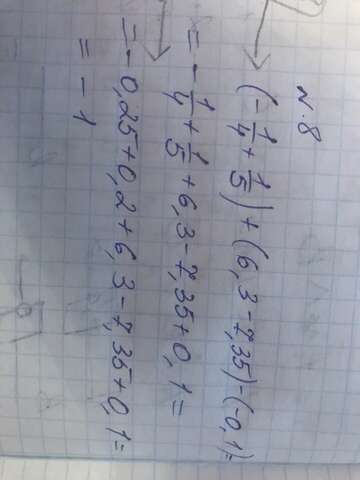 N. 8
(-1/4 + 1/5) + (6,3 - 7,35) - (-0,1) =
= -1/4 + 1/5 + 6,3 - 7,35 + 0,1 =
= -0,25 + 0,2 + 6,3 - 7,35 + 0,1 =
= -1